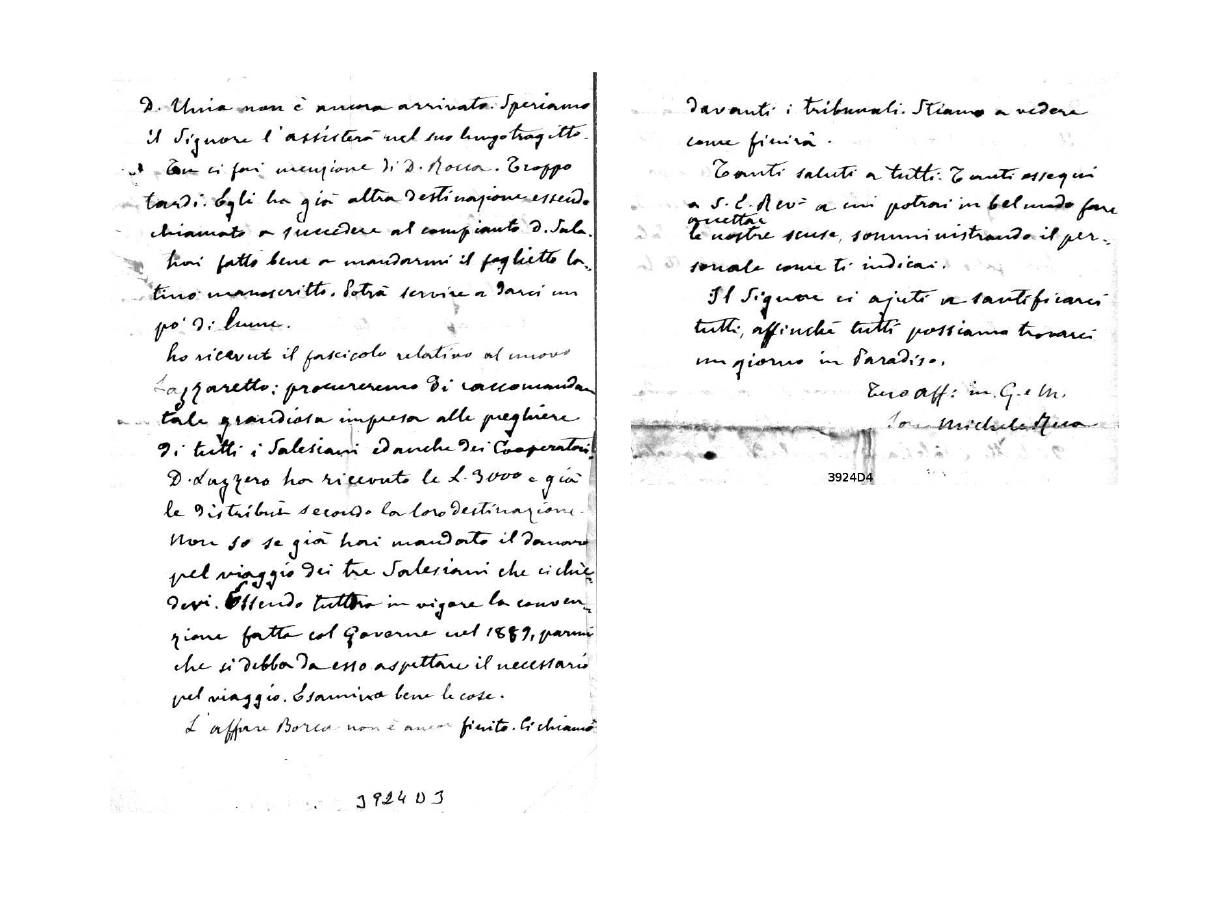 D. Unia non è ancora arrivato. Speriamo
il Signore l'assisterà nel suo lungo tragitto.
Tu ci fai menzione di D. Rocca. Troppo
tardi. Egli ha già altra destinazione essendo
chiamato a succedere al compianto D. Sala.
hai fatto bene a mandarmi il foglietto la-
tino manoscritto. Potrà servire a darci un
po' di lume.
ho ricevut il fascicolo relativo al nuovo
Lazzaretto: procureremo di raccomandar
tale grandiosa impresa alle preghiere
di tutti i Salesiani ed anche dei Cooperatori.
D. Lazzero ha ricevuto le L. 3000 e già
le distribuì secondo la loro destinazione.
Non so se già hai mandato il danaro
pel viaggio dei tre Salesiani che ci chie-
devi. Essendo tuttora in vigore la conven-
zione fatta col Governo nel 1889, parmi
che si debba da esso aspettare il necessario
pel viaggio. Esamina bene le cose.
L'affare non è ancor finito. Ci chiamò
3924D3
davanti i tribunali. Stiamo a vedere
come finirà.
Tanti saluti a tutti. Tanti ossequi
a S. E. Rev. a cui potrai in bel modo fare
accettare
le nostre scuse, somministrando il per-
sonale come ti indicai.
Il Signore ci ajuti a santificarci
tutti, affinchè tutti possiamo trovarci
un giorno in Paradiso.
Tuo aff: in G. e M.
Sac. Michele Rua
3924D4